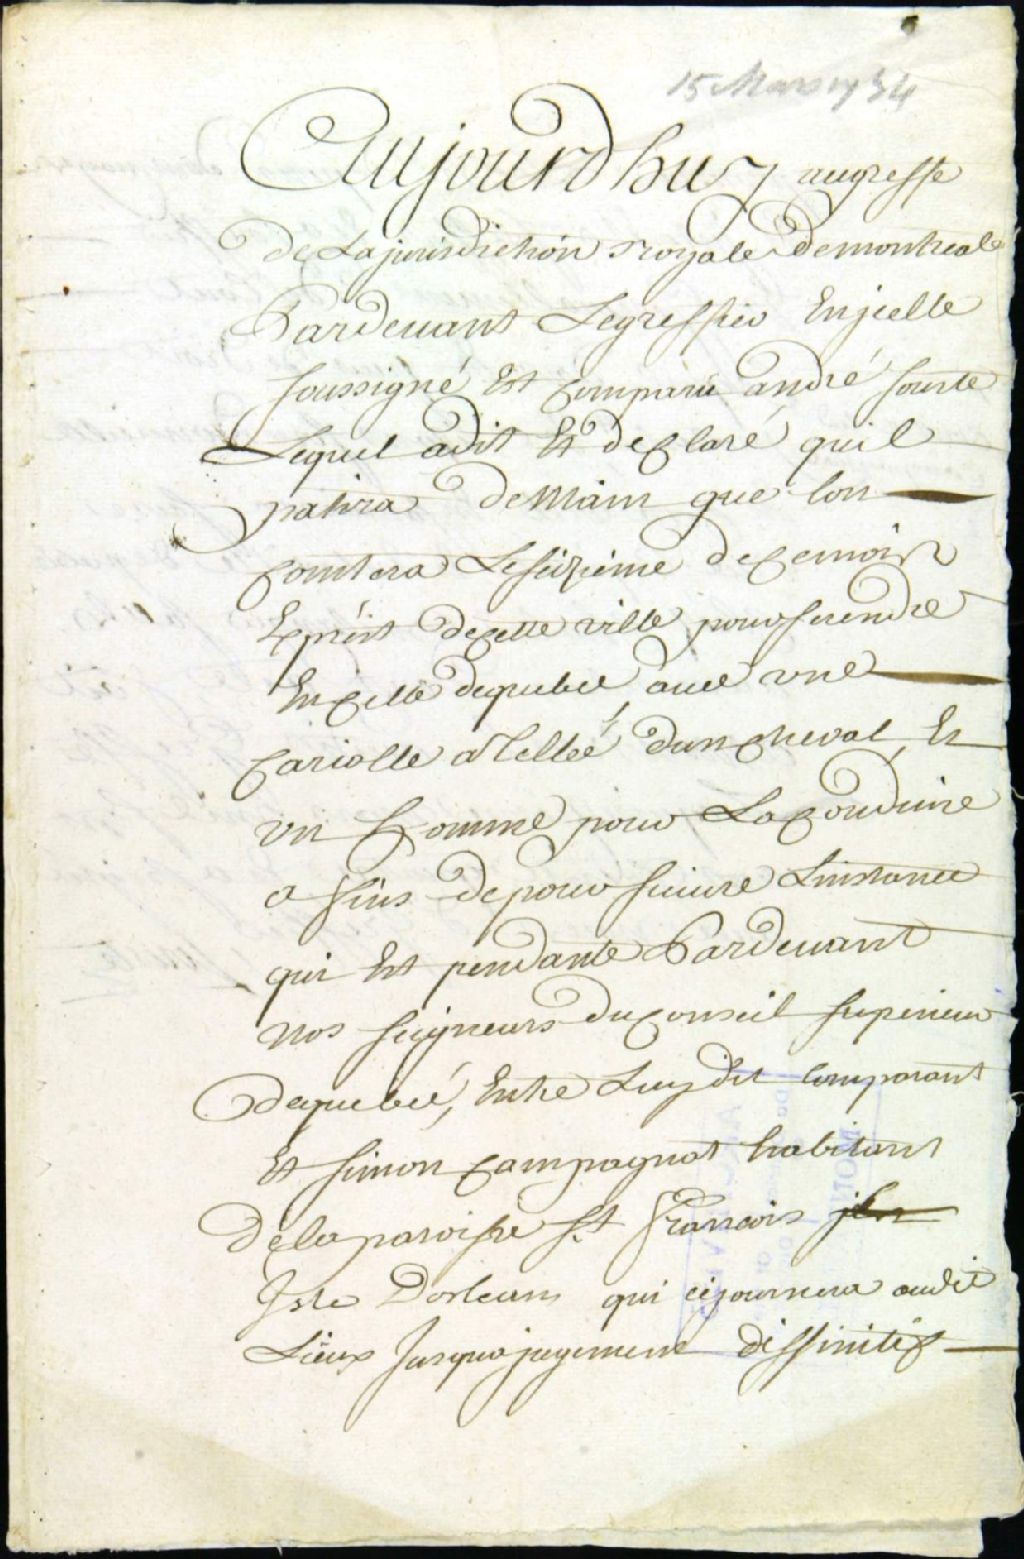 15 Mars 1734
Aujourdhuy augreffe
de La jurisdiction royale de montreal
Pardevant Legreffier Enjcelle
soussigné Est comparu andré souste
Lequel adit Et declaré quil
patira demain que lon
comtera Leseizieme decemois
Exprest decette ville pour serendre
En celle dequebec avec une
cariolle atellée dun cheval, Et
un homme pour La conduire
a fins depoursuivre Linstance
qui Est pendante Pardevant
nos seigneurs du conseil superieur
dequebec, Entre Luy dit comparant
Et simon campagnat habitant
de la paroisse st francois
Isle Dorleans qui cejournera audit
Lieux Jusqua jugement diffinitif